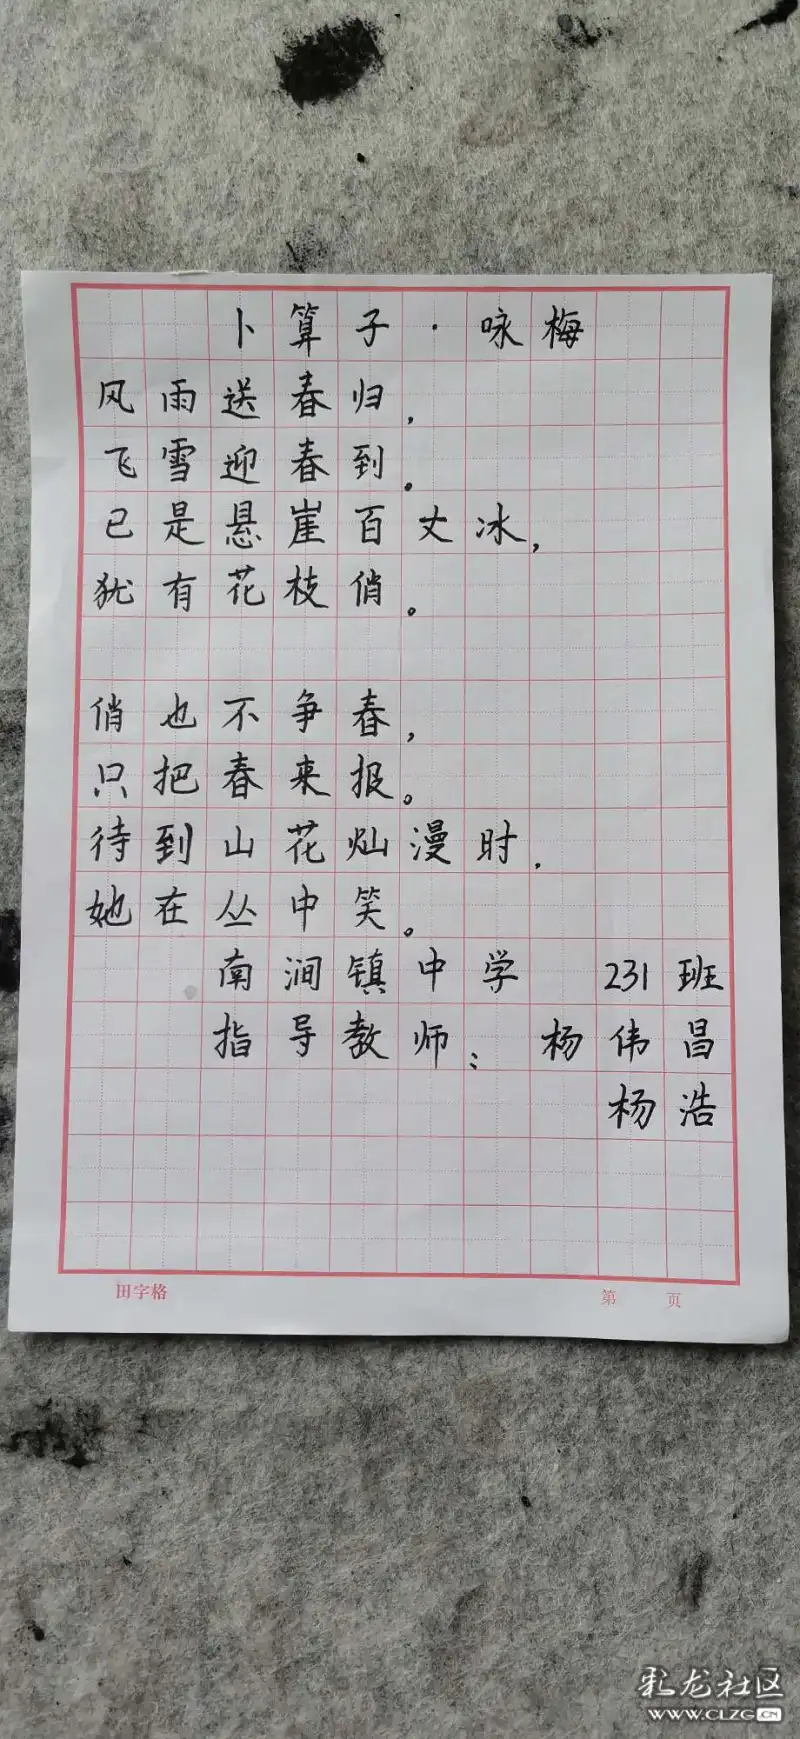 卜算子·咏梅
风雨送春归，
飞雪迎春到。
已是悬崖百丈冰，
犹有花枝俏。
俏也不争春，
只把春来报。
待到山花灿漫时，
她在丛中笑。
南涧镇中学 231班
指导教师：杨伟昌
杨浩
田字格 第 页
彩龙社区
WWW.CLZG.CN